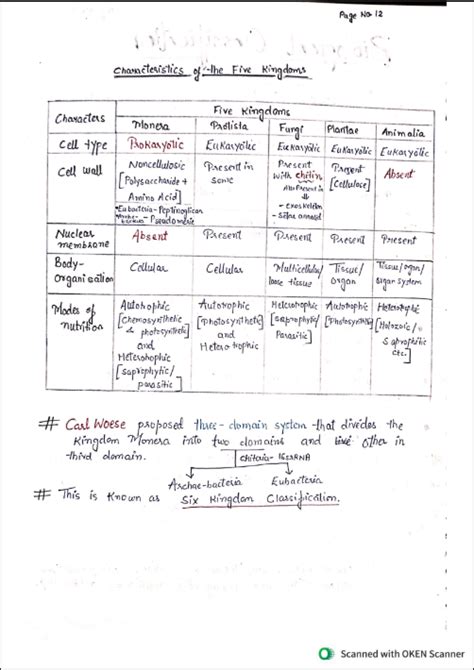 Page No 12
Characteristics of the Five Kingdoms
Characters
Five Kingdoms
Monera Protista Fungi Plantae Animalia
Cell type Prokaryotic Eukaryotic Eukaryotic Eukaryotic Eukaryotic Eukaryotic
Cell wall
Noncellulosic
[Polysaccharide +
Amino Acid]
Present in
some
Present
with chitin
Also Present in
- exoskeleton
Present
[Cellulose]
Absent
Nuclear
membrane
Absent Present Present Present Present
Body-
Organisation
Cellular Cellular
Multicellular/
loose tissue
Tissue/
Organ
Tissue/organ/
organ system
Modes of
nutrition
Autotrophic
[Chemosynthetic
& photosynthetic]
and
Heterotrophic
[saprophytic/
parasitic
Autotrophic
[Photosynthetic]
and
Heterotrophic
Heterotrophic
[Saprophytic/
Parasitic]
Autotrophic
[Photosynthetic]
Heterotrophic
[Holozoic/
Saprophitic
etc.]
# Carl Woese proposed three-domain system that divides the
Kingdom Monera into two domains and other in
third domain.
criteria- 16SrRNA
Archae-bacteria Eubacteria
# This is known as Six Kingdom Classification.
Scanned with OKEN Scanner